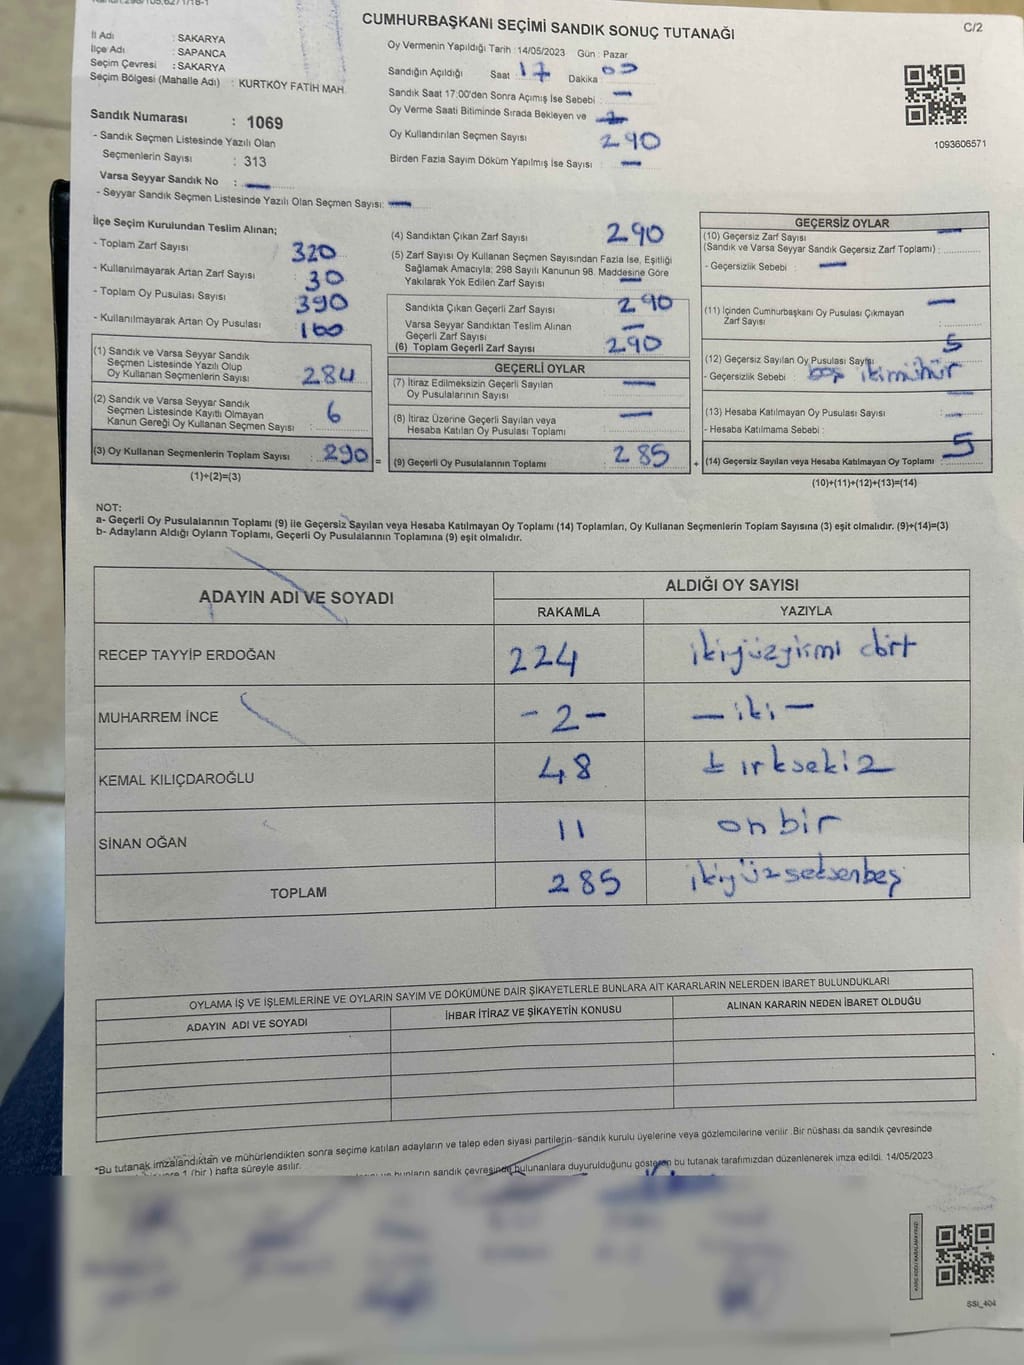 CUMHURBAŞKANI SEÇİMİ SANDIK SONUÇ TUTANAĞI
C/2
İl Adı : SAKARYA
İlçe Adı : SAPANCA
Seçim Çevresi : SAKARYA
Seçim Bölgesi (Mahalle Adı) : KURTKÖY FATİH MAH.
Oy Vermenin Yapıldığı Tarih : 14/05/2023 Gün : Pazar
Sandığın Açıldığı Saat : 17 Dakika :
Sandık Saat 17:00'den Sonra Açımış İse Sebebi : —
Oy Verme Saati Bitiminde Sırada Bekleyen ve
Oy Kullandırılan Seçmen Sayısı 290
Birden Fazla Sayım Döküm Yapılmış İse Sayısı : —
1093606571
Sandık Numarası : 1069
- Sandık Seçmen Listesinde Yazılı Olan
Seçmenlerin Sayısı : 313
Varsa Seyyar Sandık No : —
- Seyyar Sandık Seçmen Listesinde Yazılı Olan Seçmen Sayısı: —
İlçe Seçim Kurulundan Teslim Alınan;
- Toplam Zarf Sayısı : 320
- Kullanılmayarak Artan Zarf Sayısı : 30
- Toplam Oy Pusulası Sayısı : 390
- Kullanılmayarak Artan Oy Pusulası : 100
(1) Sandık ve Varsa Seyyar Sandık
Seçmen Listesinde Yazılı Olup
Oy Kullanan Seçmenlerin Sayısı : 284
(2) Sandık ve Varsa Seyyar Sandık
Seçmen Listesinde Kayıtlı Olmayan
Kanun Gereği Oy Kullanan Seçmen Sayısı : 6
(3) Oy Kullanan Seçmenlerin Toplam Sayısı : 290 =
(1)+(2)=(3)
(4) Sandıktan Çıkan Zarf Sayısı 290
(5) Zarf Sayısı Oy Kullanan Seçmen Sayısından Fazla İse, Eşitliği
Sağlamak Amacıyla; 298 Sayılı Kanunun 98. Maddesine Göre
Yakılarak Yok Edilen Zarf Sayısı : —
Sandıkta Çıkan Geçerli Zarf Sayısı 290
Varsa Seyyar Sandıktan Teslim Alınan
Geçerli Zarf Sayısı —
(6) Toplam Geçerli Zarf Sayısı 290
GEÇERLİ OYLAR
(7) İtiraz Edilmeksizin Geçerli Sayılan
Oy Pusulalarının Sayısı —
(8) İtiraz Üzerine Geçerli Sayılan veya
Hesaba Katılan Oy Pusulası Toplamı —
(9) Geçerli Oy Pusulalarının Toplamı 285 +
GEÇERSİZ OYLAR
(10) Geçersiz Zarf Sayısı —
(Sandık ve Varsa Seyyar Sandık Geçersiz Zarf Toplamı) :
- Geçersizlik Sebebi : —
(11) İçinden Cumhurbaşkanı Oy Pusulası Çıkmayan
Zarf Sayısı : —
(12) Geçersiz Sayılan Oy Pusulası Sayısı 5
- Geçersizlik Sebebi : boş iki mühür
(13) Hesaba Katılmayan Oy Pusulası Sayısı : —
- Hesaba Katılmama Sebebi :
(14) Geçersiz Sayılan veya Hesaba Katılmayan Oy Toplamı : 5
(10)+(11)+(12)+(13)=(14)
NOT:
a- Geçerli Oy Pusulalarının Toplamı (9) ile Geçersiz Sayılan veya Hesaba Katılmayan Oy Toplamı (14) Toplamları, Oy Kullanan Seçmenlerin Toplam Sayısına (3) eşit olmalıdır. (9)+(14)=(3)
b- Adayların Aldığı Oyların Toplamı, Geçerli Oy Pusulalarının Toplamına (9) eşit olmalıdır.
ADAYIN ADI VE SOYADI
ALDIĞI OY SAYISI
RAKAMLA YAZIYLA
RECEP TAYYİP ERDOĞAN 224 ikiyüzyirmi dört
MUHARREM İNCE - 2 - — iki —
KEMAL KILIÇDAROĞLU 48 kırksekiz
SİNAN OĞAN 11 on bir
TOPLAM 285 ikiyüzseksenbeş
OYLAMA İŞ VE İŞLEMLERİNE VE OYLARIN SAYIM VE DÖKÜMÜNE DAİR ŞİKAYETLERLE BUNLARA AİT KARARLARIN NELERDEN İBARET BULUNDUKLARI
ADAYIN ADI VE SOYADI İHBAR İTİRAZ VE ŞİKAYETİN KONUSU ALINAN KARARIN NEDEN İBARET OLDUĞU
*Bu tutanak imzalandıktan ve mühürlendikten sonra seçime katılan adayların ve talep eden siyasi partilerin sandık kurulu üyelerine veya gözlemcilerine verilir .Bir nüshası da sandık çevresinde
1 (bir ) hafta süreyle asılır.
bunların sandık çevresinde bulunanlara duyurulduğunu gösteren bu tutanak tarafımızdan düzenlenerek imza edildi. 14/05/2023
SSI_404